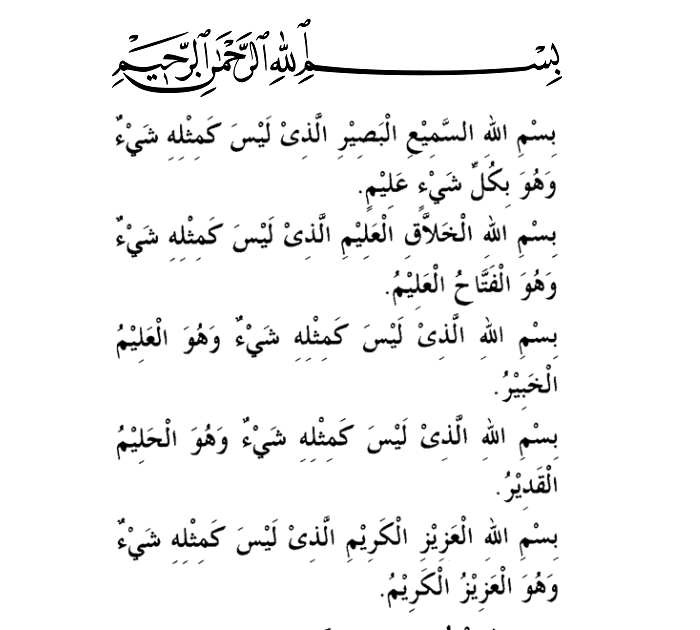 بِسْمِ اللهِ الرَّحْمٰنِ الرَّحِيْمِ
بِسْمِ اللهِ السَّمِيْعِ الْبَصِيْرِ الَّذِىْ لَيْسَ كَمِثْلِهِ شَيْءٌ
وَهُوَ بِكُلِّ شَيْءٍ عَلِيْمٍ.
بِسْمِ اللهِ الْخَلاَّقِ الْعَلِيْمِ الَّذِىْ لَيْسَ كَمِثْلِهِ شَيْءٌ
وَهُوَ الْفَتَّاحُ الْعَلِيْمُ.
بِسْمِ اللهِ الَّذِىْ لَيْسَ كَمِثْلِهِ شَيْءٌ وَهُوَ الْعَلِيْمُ
الْخَبِيْرُ.
بِسْمِ اللهِ الَّذِىْ لَيْسَ كَمِثْلِهِ شَيْءٌ وَهُوَ الْحَلِيْمُ
الْقَدِيْرُ.
بِسْمِ اللهِ الْعَزِيْزِ الْكَرِيْمِ الَّذِىْ لَيْسَ كَمِثْلِهِ شَيْءٌ
وَهُوَ الْعَزِيْزُ الْكَرِيْمُ.